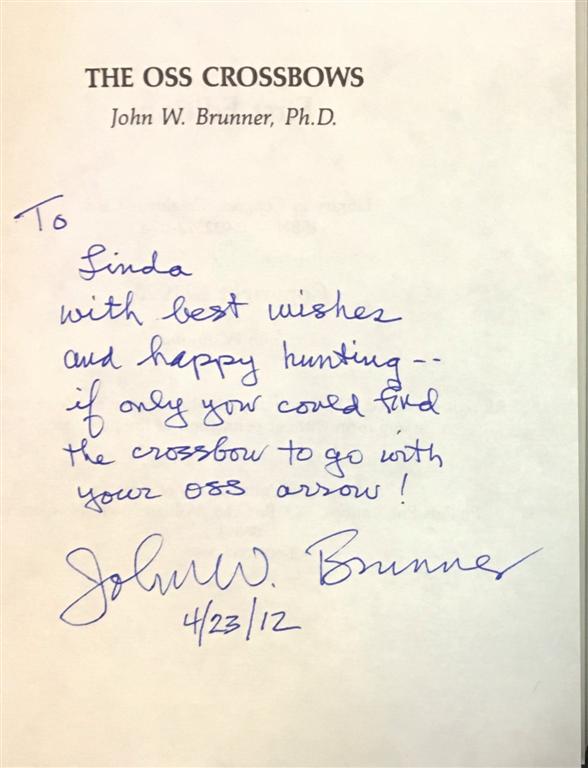 THE OSS CROSSBOWS
John W. Brunner, Ph.D.
To
Linda
with best wishes
and happy hunting--
if only you could find
the crossbow to go with
your OSS arrow!
John W. Brunner
4/23/12